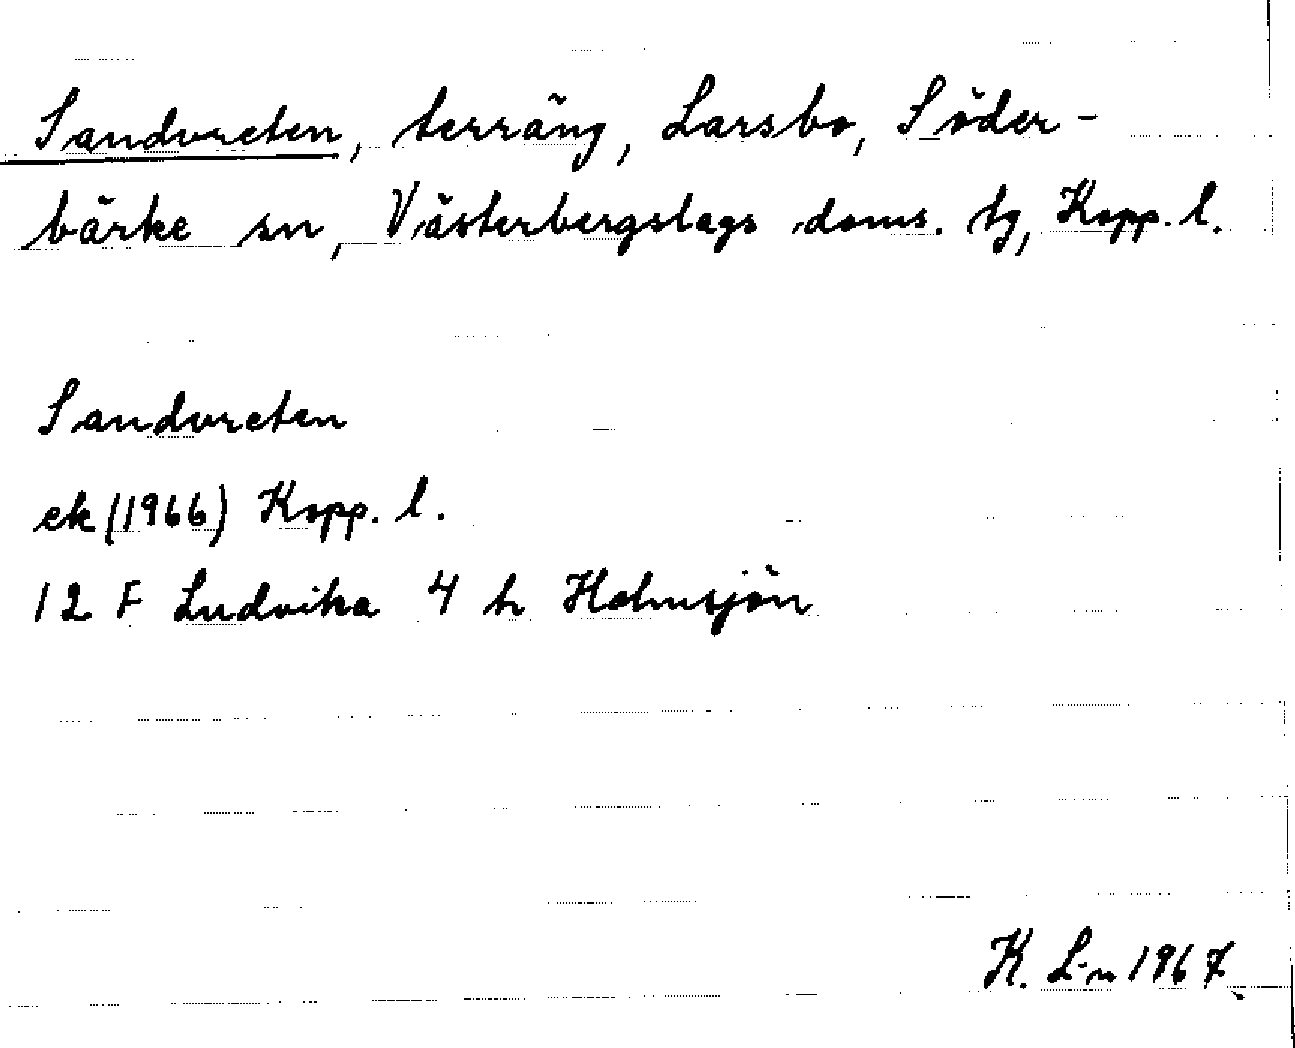 Sandvreten, terräng, Larsbo, Söder-
bärke sn, Västerbergslags doms. tg, Kopp. l.
Sandvreten
ek (1966) Kopp. l.
12 F Ludvika 4 h Holmsjön
K. L-n 1967